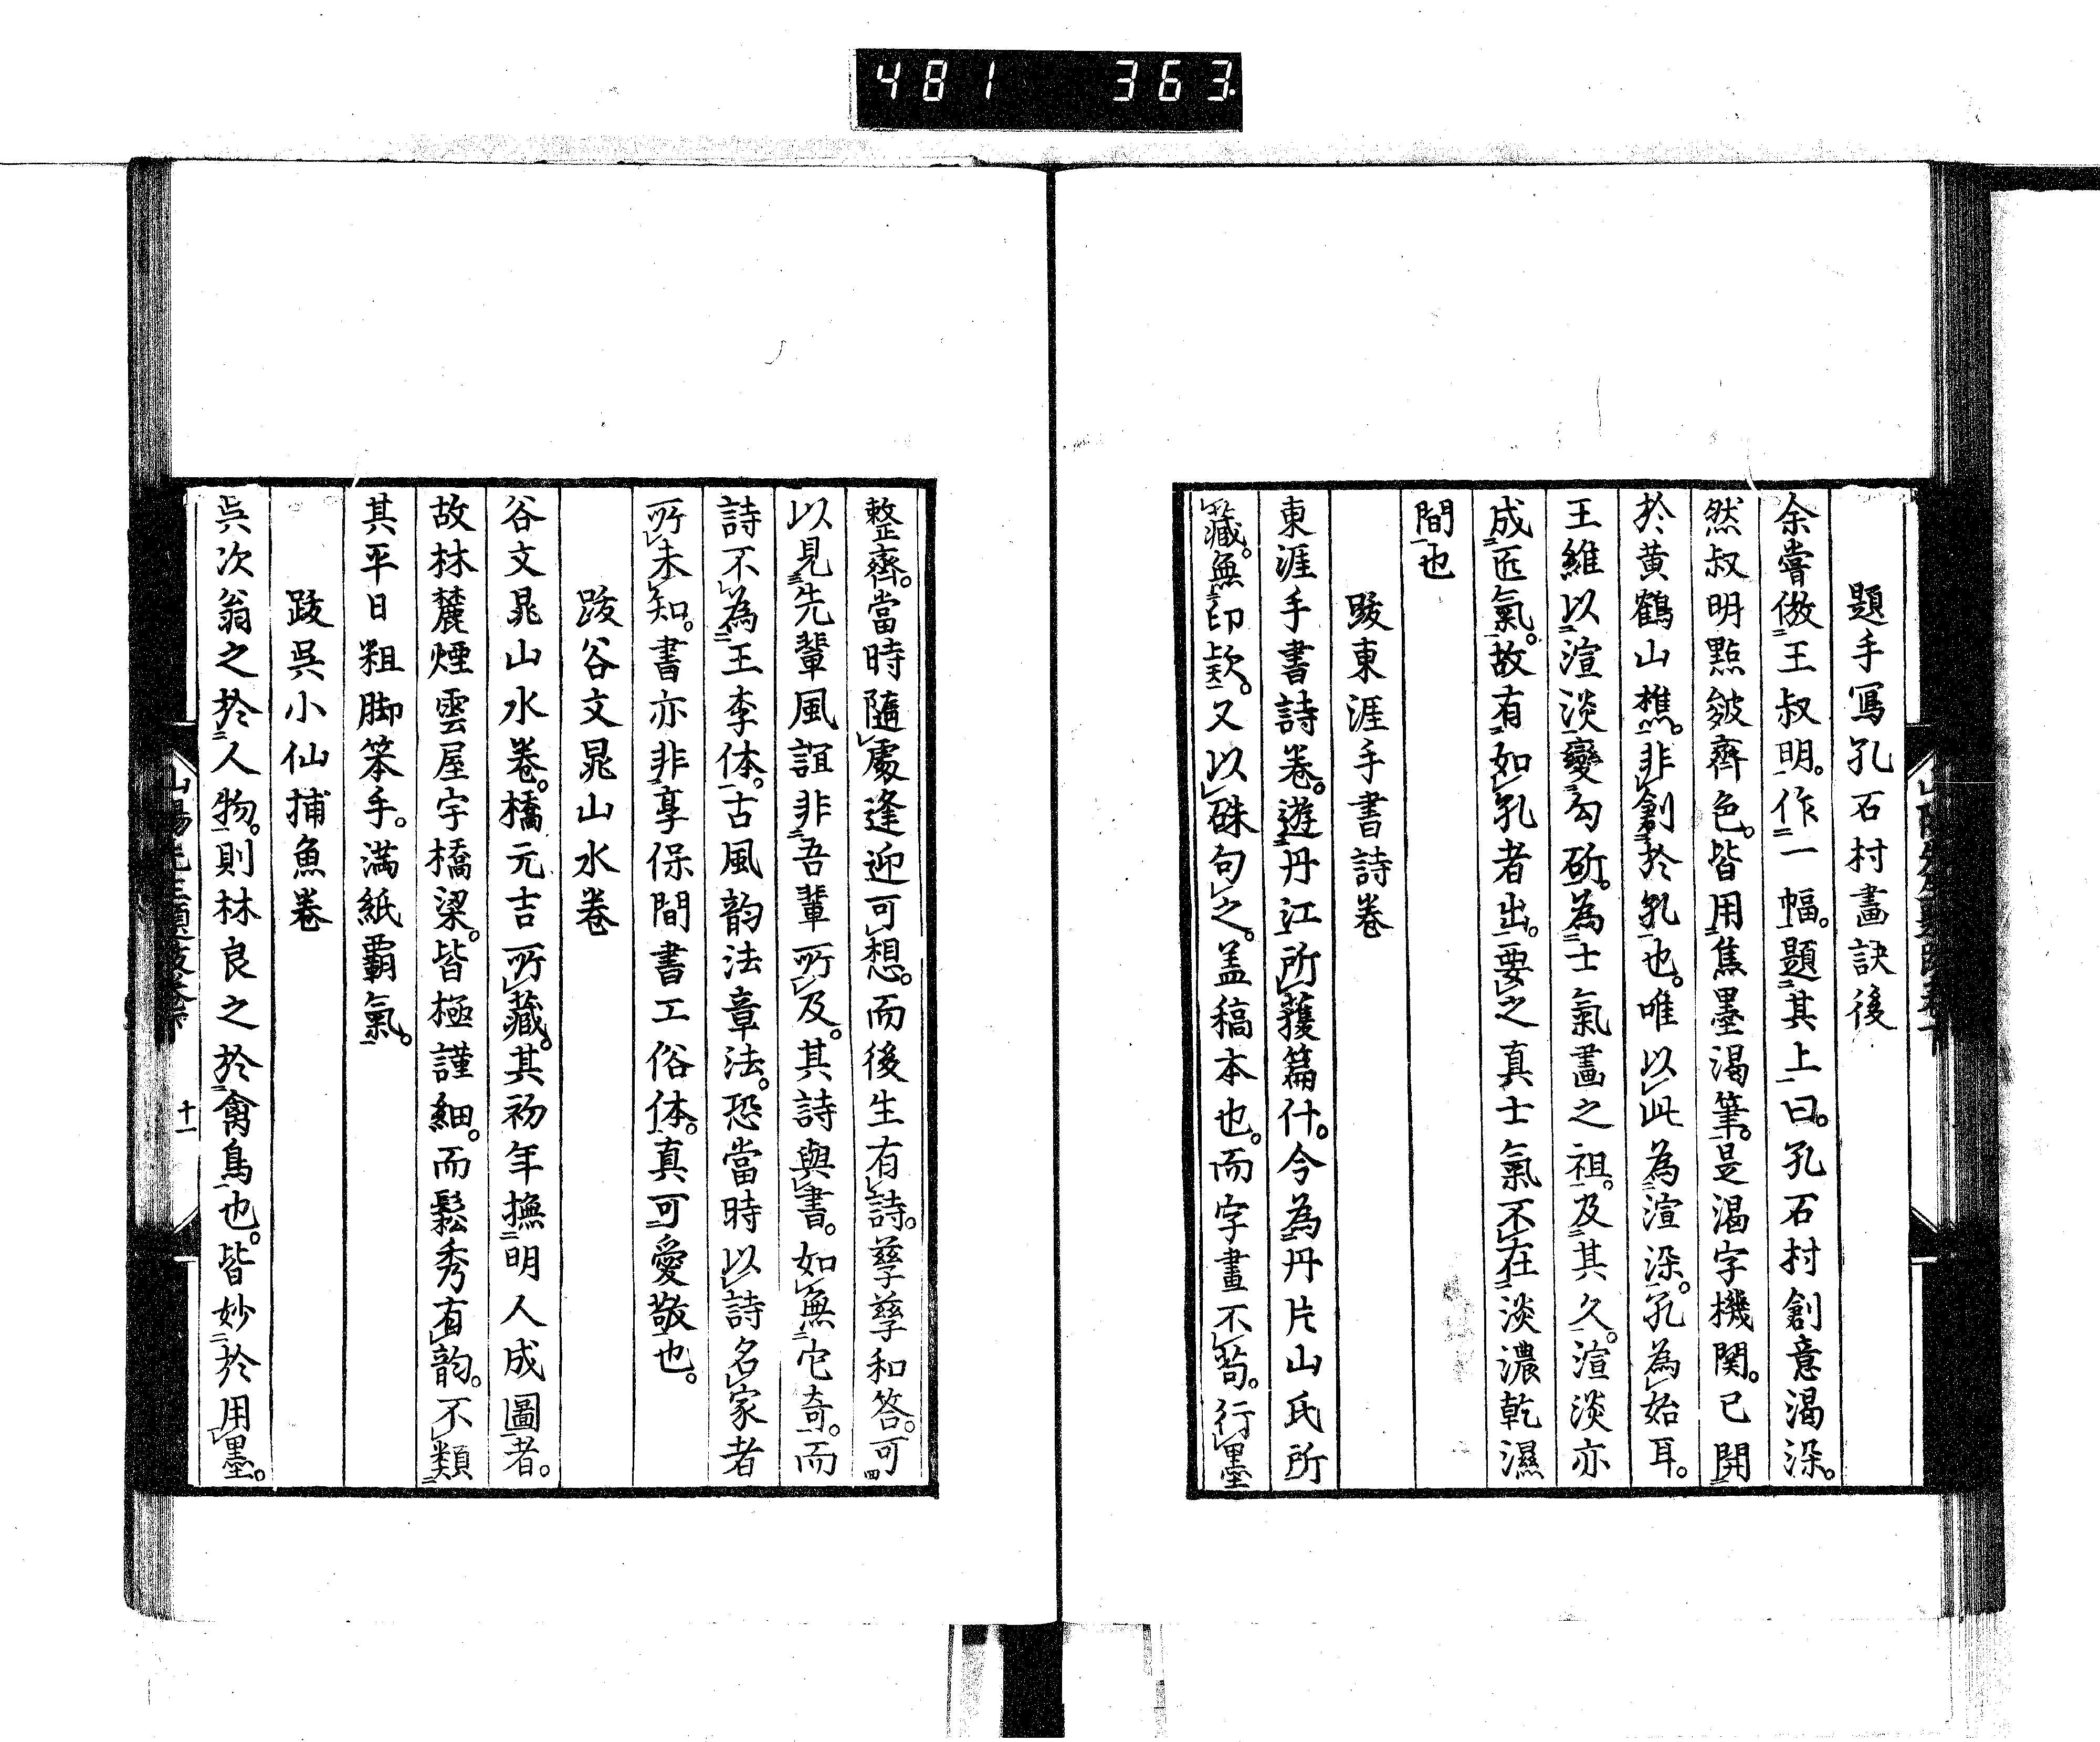 481 363
題手寫孔石村畫訣後
余嘗倣王叔明。作一幅。題其上曰。孔石村創意渴染。
然叔明點皴齊色。皆用焦墨渴筆。是渴字機関。已開
於黄鶴山樵。非創於孔也。唯以此為渲染。孔為始耳。
王維以渲淡變勾斫。為士氣畫之祖。及其久。渲淡亦
成匠氣。故有如孔者出。要之真士氣不在淡濃乾濕
間也
跋東涯手書詩卷
東涯手書詩卷。遊丹江所獲篇什。今為丹片山氏所
藏。無印款。又以硃句之。盖稿本也。而字畫不苟。行墨
整齊。當時隨處逢迎可想。而後生有詩。孳孳和答。可
以見先輩風誼非吾輩所及。其詩與書。如無它奇。而
詩不為王李体。古風韵法章法。恐當時以詩名家者
所未知。書亦非享保間書工俗体。真可愛敬也。
跋谷文晁山水卷
谷文晁山水卷。橋元吉所藏。其初年撫明人成圖者。
故林麓煙雲屋宇橋梁。皆極謹細。而鬆秀有韵。不類
其平日粗脚笨手。満紙覇氣。
跋呉小仙捕魚卷
呉次翁之於人物。則林良之於禽鳥也。皆妙於用墨。
十一